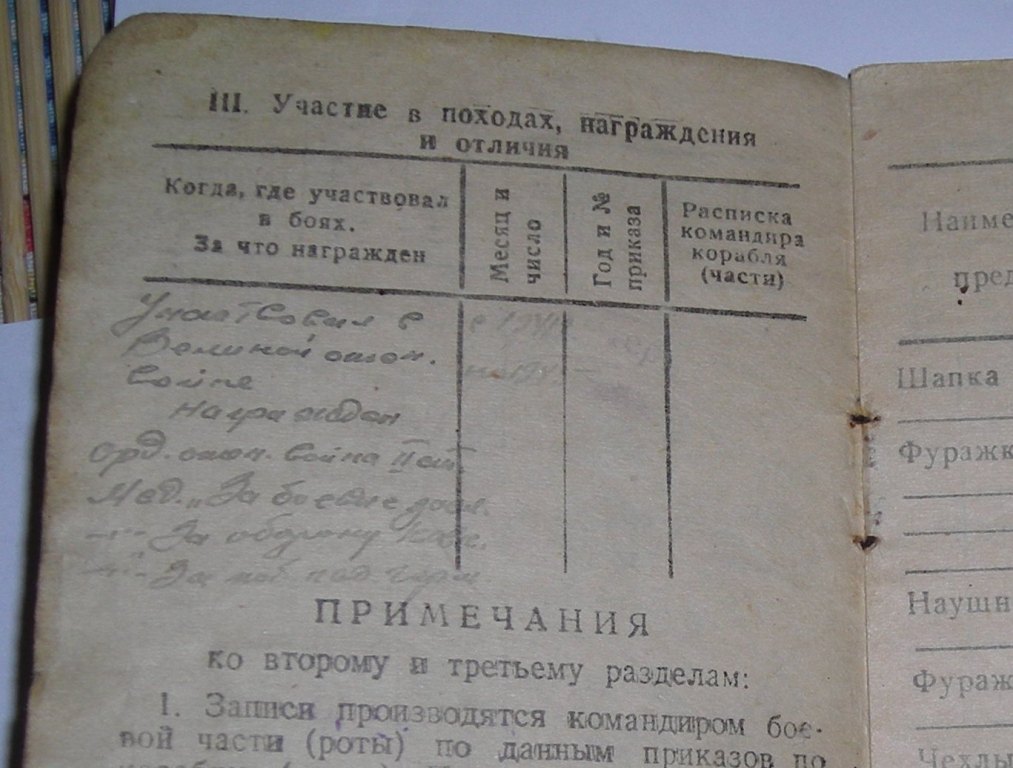 III. Участие в походах, награждения
и отличия
Когда, где участвовал
в боях.
За что награжден
Месяц и
число
Год и №
приказа
Расписка
командира
корабля
(части)
Участвовал в
Великой отеч.
войне
с 1941
по 1945
награжден
орд. отеч. война II ст.
Мед. „За боевые
За оборону
За поб. над Герм
ПРИМЕЧАНИЯ
ко второму и третьему разделам:
1. Записи производятся командиром бое-
вой части (роты) по данным приказов по
Наиме
пред
Шапка
Фуражк
Наушн
Фураж
Чехлы